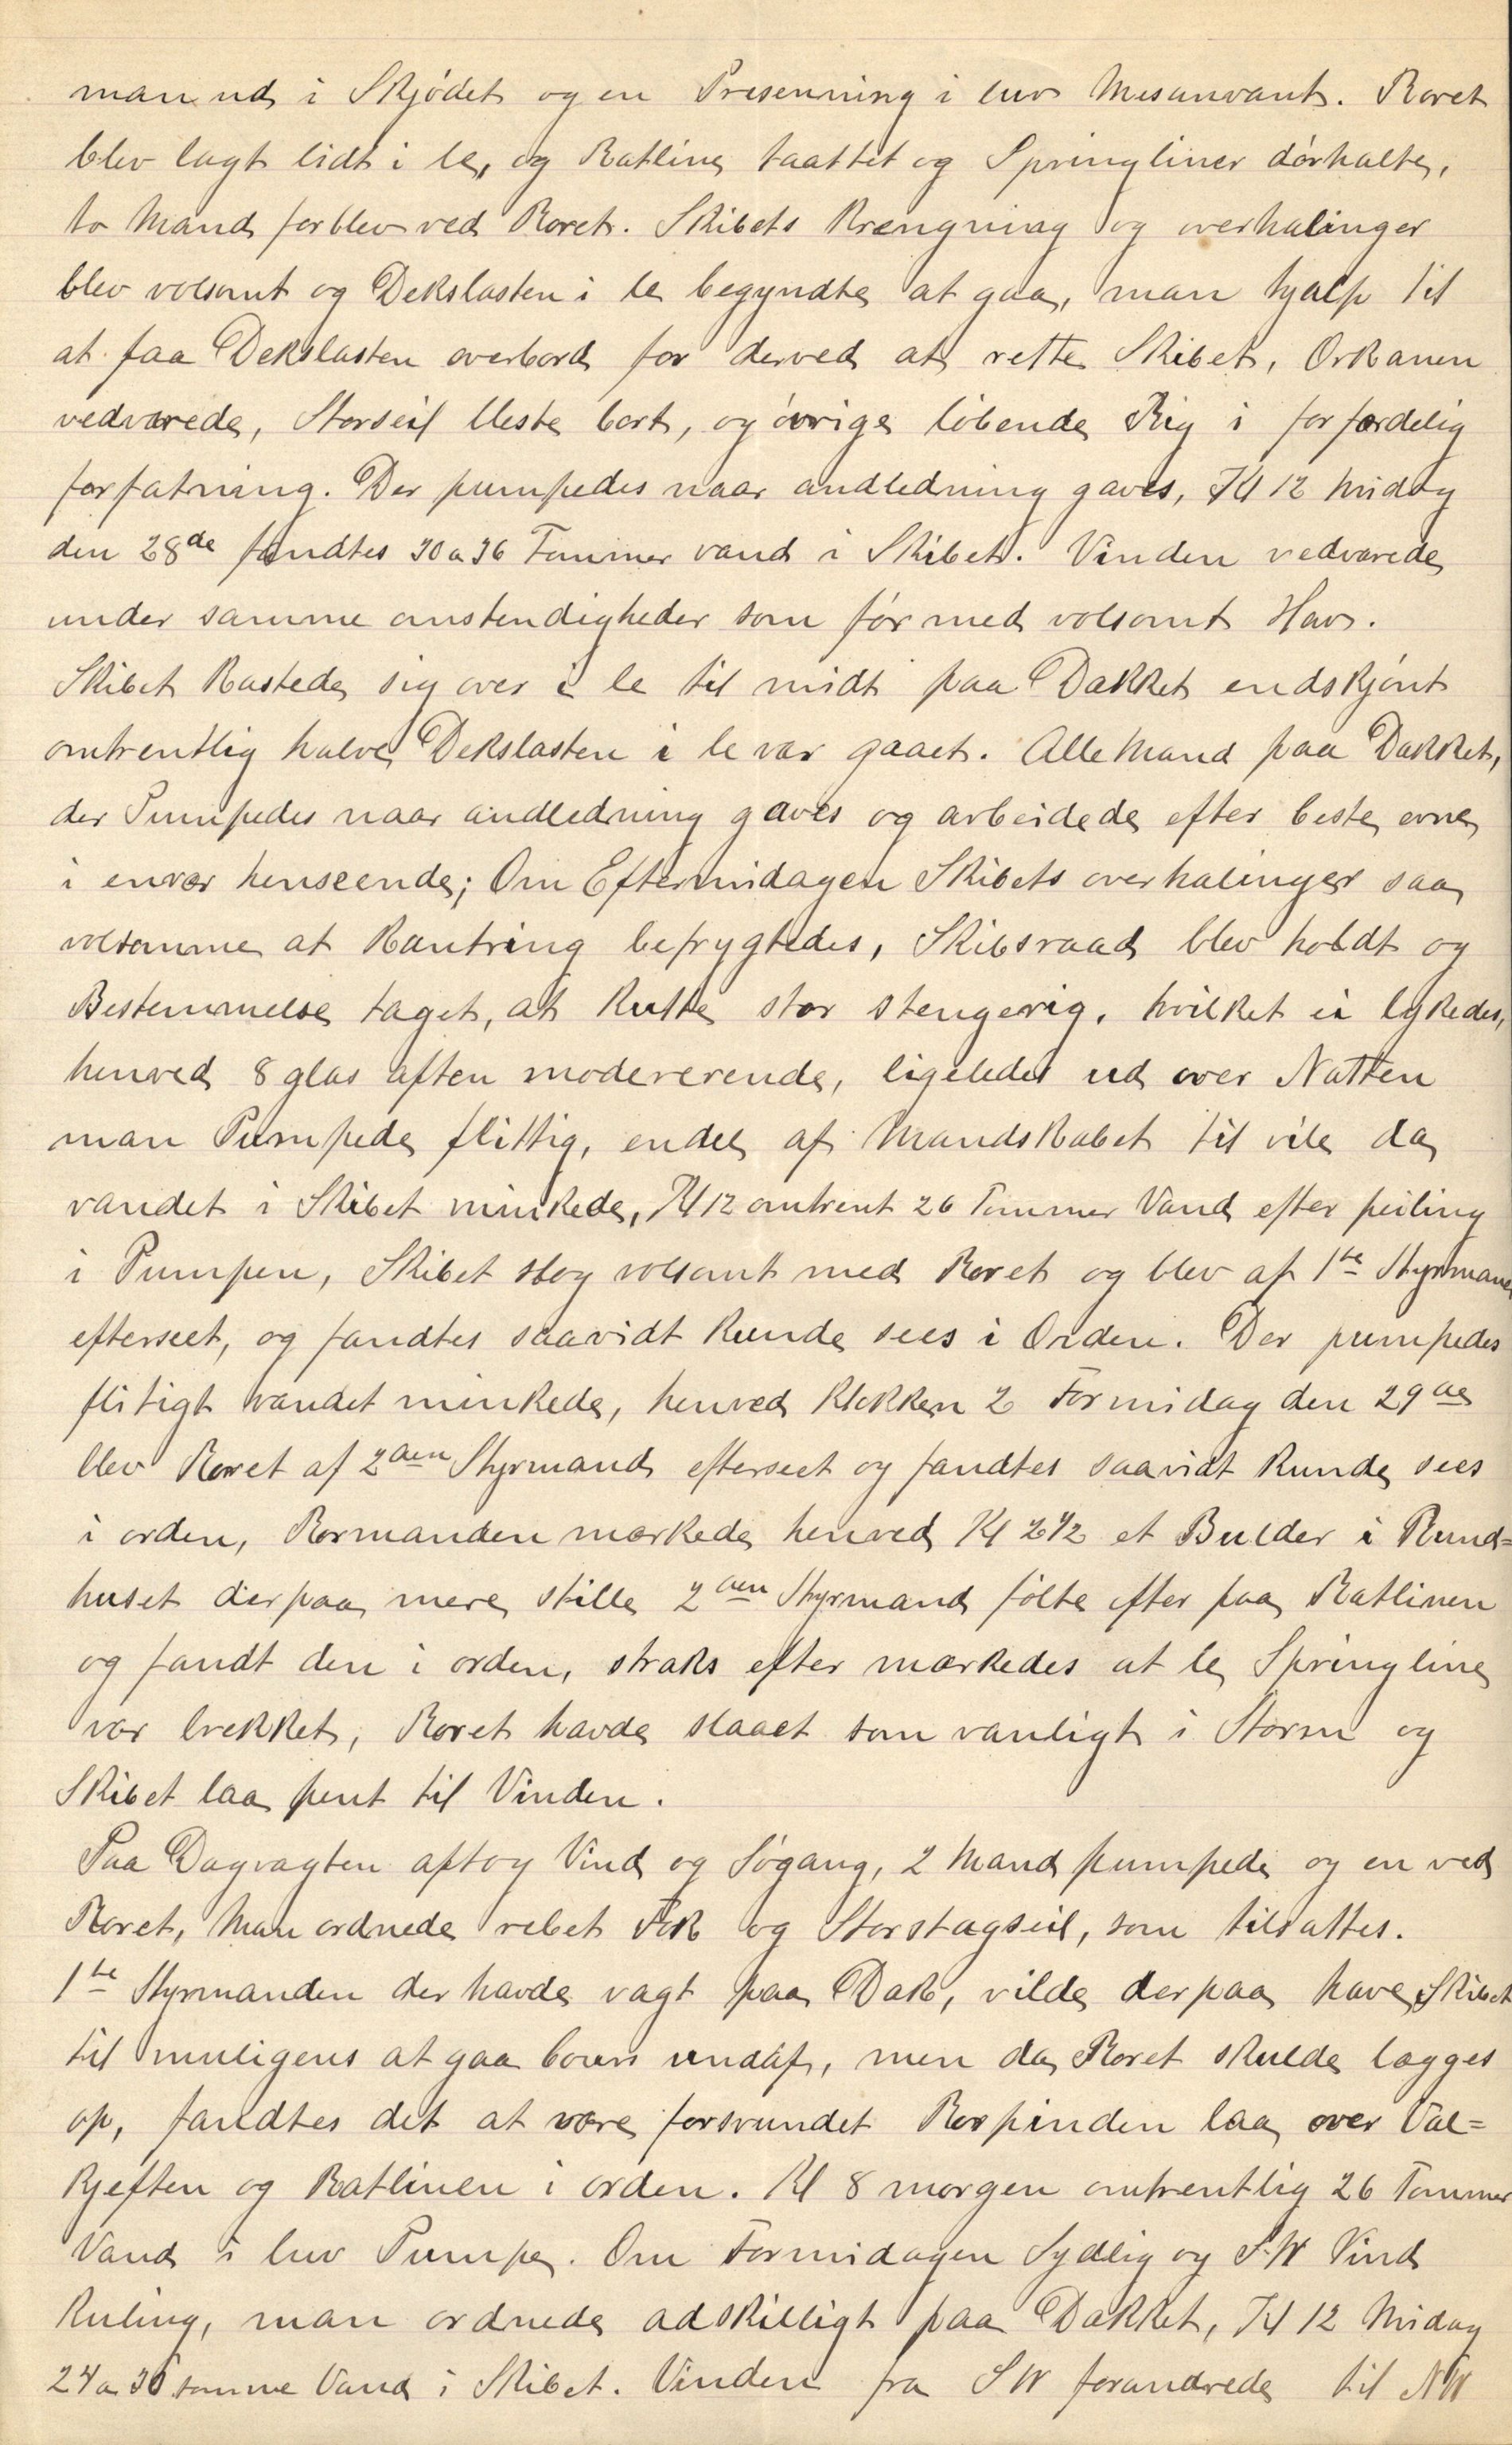 man ud i Skjødet og en Presenning i luv Mesanvant. Roret
blev lagt lidt i le, og Ratline taattet og Springliner dørhalte,
to Mand forblev ved Roret. Skibets Krengning og overhalinger
blev volsomt og Dekslasten i le begyndte at gaa, man hjalp til
at faa Dekslasten overbord for derved at rette Skibet, Orkanen
vedvarede, Storseil bleste bort, og øvrige løbende Rig i forfærdelig
forfatning. Der pumpedes naar andledning gaves, Kl 12 Midag
den 28de fandtes 30 a 36 Tommer vand i Skibet. Vinden vedvarede
under samme omstendigheder som før med volsomt Hav.
Skibet Kastede sig over i le til midt paa Dækket endskjønt
omtrentlig halve Dekslasten i le var gaaet. Alle Mand paa Dækket,
der Pumpedes naar andledning gaves og arbeidede efter beste evne
i enver henseende; Om Eftermidagen Skibets overhalinger saa
volsomme at Kantring befrygtedes, Skibsraad blev holdt og
Bestemmelse taget, at Kutte stor stengerig, hvilket ei lykedes,
henved 8 glas aften modererende, ligeledes ud over Natten
man Pumpede flittig, endel af Mandskabet til vile da
vandet i Skibet minkede, Kl 12 omtrent 26 Tommer Vand efter peiling
i Pumpen, Skibet slog volsomt med Roret og blev af 1ste Styrmand
efterseet, og fandtes saavidt Kunde sees i Orden. Der pumpedes
flitigt vandet minkede, henved Klokken 2 Formidag den 29de
blev Roret af 2den Styrmand efterseet og fandtes saavidt Kunde sees
i orden, Rormanden mærkede henved Kl 2 1/2 et Bulder i Rund=
huset derpaa mere stille 2den Styrmand følte efter paa Ratlinen
og fandt den i orden, straks efter mærkedes at le Springline
var brekket, Roret havde slaaet som vanligt i Storm og
Skibet laa pent til Vinden.
Paa Dagvagten aftog Vind og Søgang, 2 Mand pumpede og en ved
Roret, Man ordnede rebet Fok og Storstagseil, som tilsattes.
1ste Styrmanden der havde vagt paa Dæk, vilde derpaa have Skibet
til muligens at gaa bouvs undaf, men da Roret skulde lægges
op, fandtes det at være forsvundet Rorpinden laa over Val=
Kjeften og Ratlinen i orden. Kl 8 morgen omtrentlig 26 Tommer
Vand i luv Pumpe. Om Formidagen Sydlig og S.W Vind
Kuling, man ordnede adskilligt paa Dækket, Kl 12 Midag
24 a 30 tomme Vand i Skibet. Vinden fra SW forandrede til NW